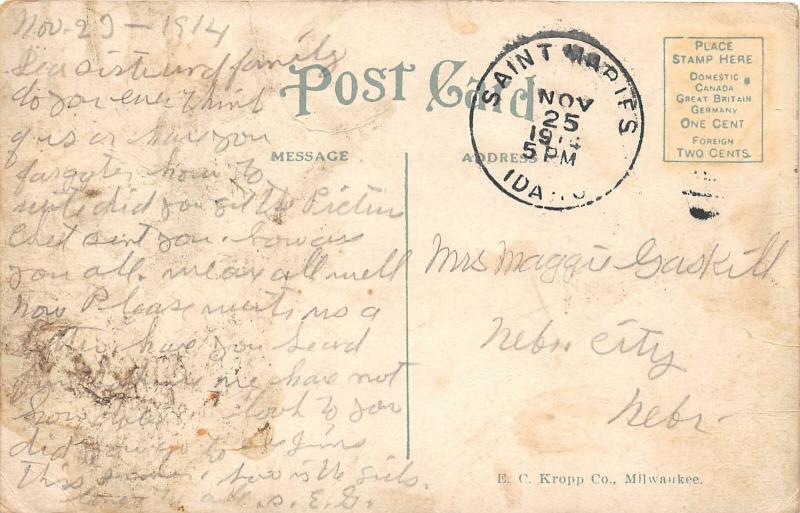 Nov. 2) - 1914
Dear sister and family
do you ever think
of us or have you
forgotten how to
write did you get the Picture
I sent you. how are
you all. we are all well
now Please write us a
letter. have you heard
from we have not
how to you
did you go to see Jims
this summer. how is the girls.
all. S. E. G.
POST CARD
MESSAGE
ADDRESS
SAINT MARIES
NOV
25
1914
5 PM
IDAHO
PLACE
STAMP HERE
DOMESTIC
CANADA
GREAT BRITAIN
GERMANY
ONE CENT
FOREIGN
TWO CENTS.
Mrs Maggie Gaskill
Nebr City
Nebr.
E. C. Kropp Co., Milwaukee.